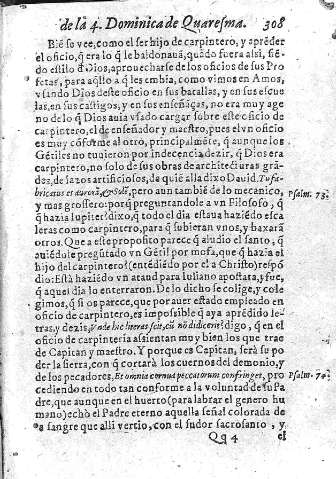 de la 4. Dominica de Quaresma. 308
Biē se vee, como el ser hijo de carpintero, y aprēder
el oficio, q̄ era lo q̄ le baldonauā, quādo fuera assi, siē-
do estilo d̄ Dios, aprouecharse de los oficios de sus Pro
fetas, para aq̄llo a q̄ les embia, como vimos en Amos,
vsando Dios deste oficio en sus batallas, y en sus escue
las, en sus castigos, y en sus enseñāças, no era muy age
no de lo q̄ Dios auia vsado cargar sobre este oficio de
carpintero, el de enseñador y maestro, pues el vn oficio
es muy cōforme al otro, principalmēte, q̄ aunque los
Gētiles no tuuieron por indecencia dezir, q̄ Dios era
carpintero, no solo de sus obras de architecturas grā-
des, de las artificiosos, de quiē alla dixo Dauid, Tu fa-
bricatus es aurorā, & Solē, pero aun tambiē de lo mecanico,
y mas grossero: porq̄ preguntandole a vn Filosofo, q̄
q̄ hazia Iupiter? dixo, q̄ todo el dia estaua haziēdo esca
leras como carpintero, para q̄ subieran vnos, y baxarā
otros. Que a este proposito parece q̄ aludio el santo, q̄
auiēdole pregūtado vn Gētil por mofa, que q̄ hazia el
hijo del carpintero? (entēdiēdo por el a Christo) respō
dio: Està haziēdo vn ataud para Iuliano apostata, y fue,
q̄ aquel dia lo enterraron. De lo dicho se colige, y cole
gimos, q̄ si os parece, que por auer estado empleado en
oficio de carpintero, es impossible q̄ aya aprēdido le-
tras, y dezis, Vnde hic literas scit, cū nō didicerit? digo, q̄ en el
oficio de carpinteria assientan muy bien los que trae
de Capitan y maestro. Y porque es Capitan, serà su po
der la sierra, con q̄ cortarà los cuernos del demonio, y
de los pecadores, Et omnia cornua peccatorum confringes, pro
cediendo en todo tan conforme a la voluntad de su Pa
dre, que aunque en el huerto (para labrar el genero hu
mano) echò el Padre eterno aquella señal colorada de
es sangre que alli vertio, con el sudor sacrosanto, y
Qq 4 el
Psalm. 73.
Psalm. 74.